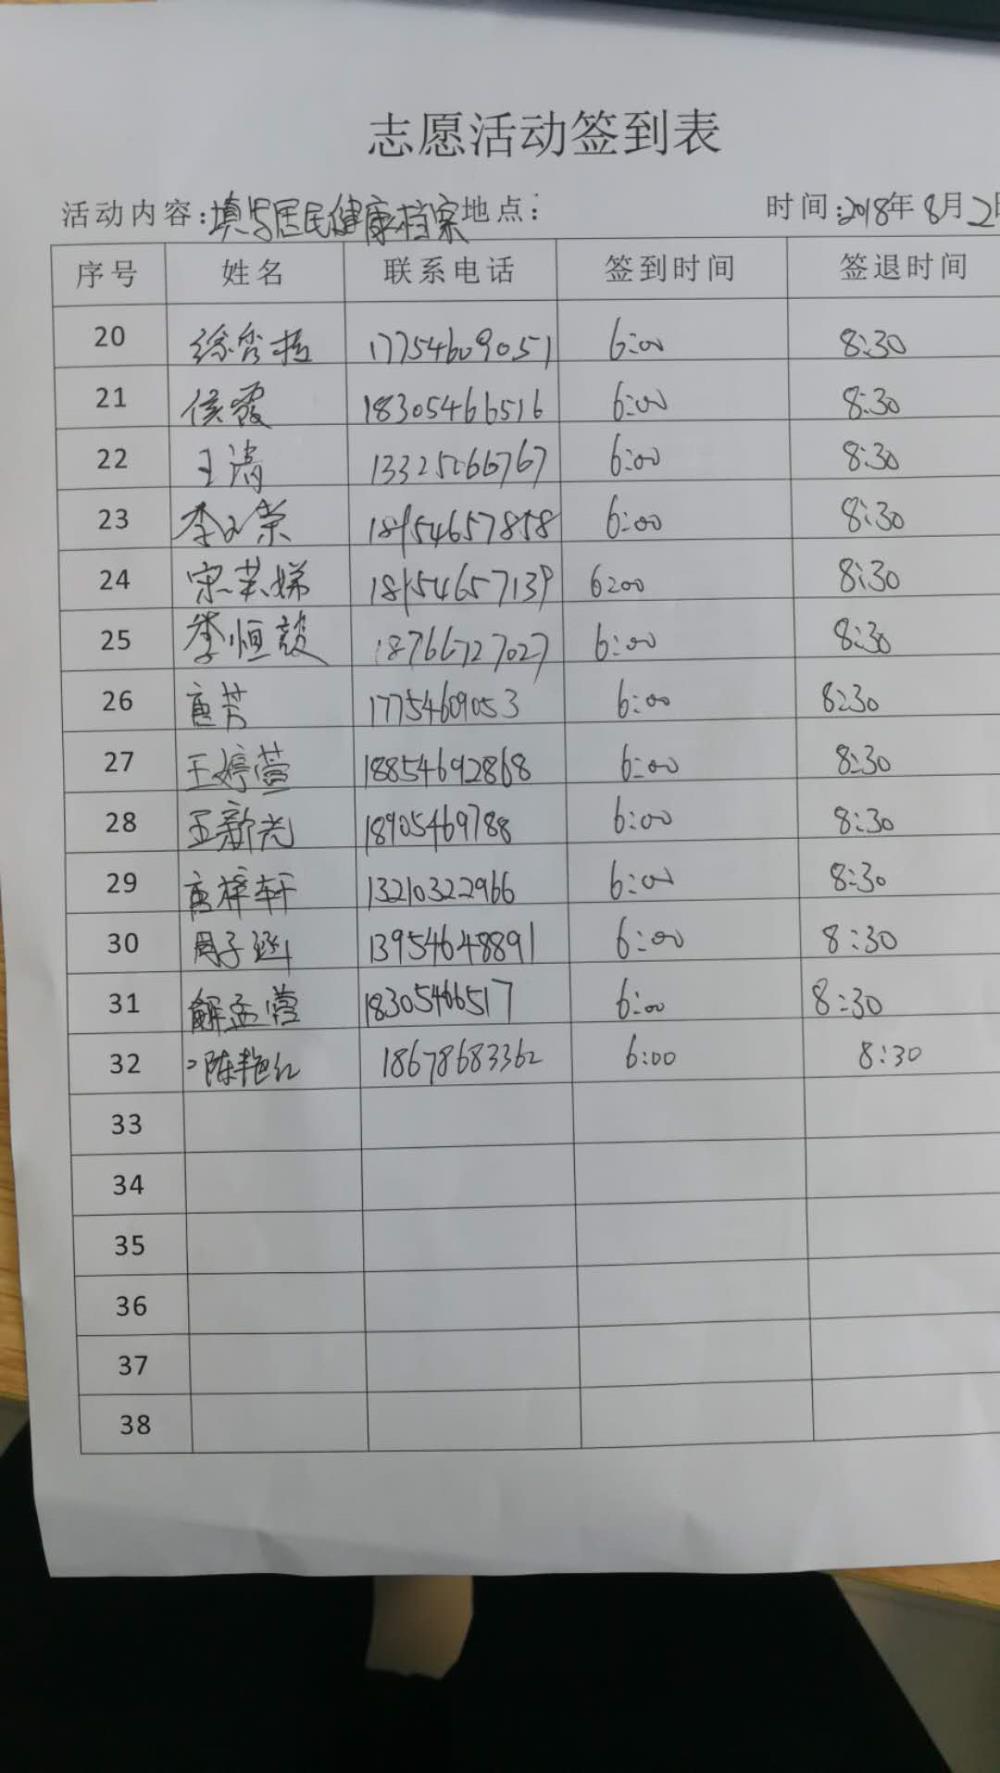 志愿活动签到表
活动内容:填写居民健康档案地点: 时间:2018年8月2日
序号 姓名 联系电话 签到时间 签退时间
20 徐秀 17754609051 6:00 8:30
21 侯霞 18305466516 6:00 8:30
22 王涛 13325266767 6:00 8:30
23 李 荣 18154657858 6:00 8:30
24 宋英娣 18154657139 6:00 8:30
25 李恒 18766727027 6:00 8:30
26 唐芳 17754609053 6:00 8:30
27 王婷萱 18854692868 6:00 8:30
28 王新光 18905469788 6:00 8:30
29 唐梓轩 13210322966 6:00 8:30
30 周子涵 13954648891 6:00 8:30
31 解孟营 18305466517 6:00 8:30
32 陈艳红 18678683362 6:00 8:30
33
34
35
36
37
38